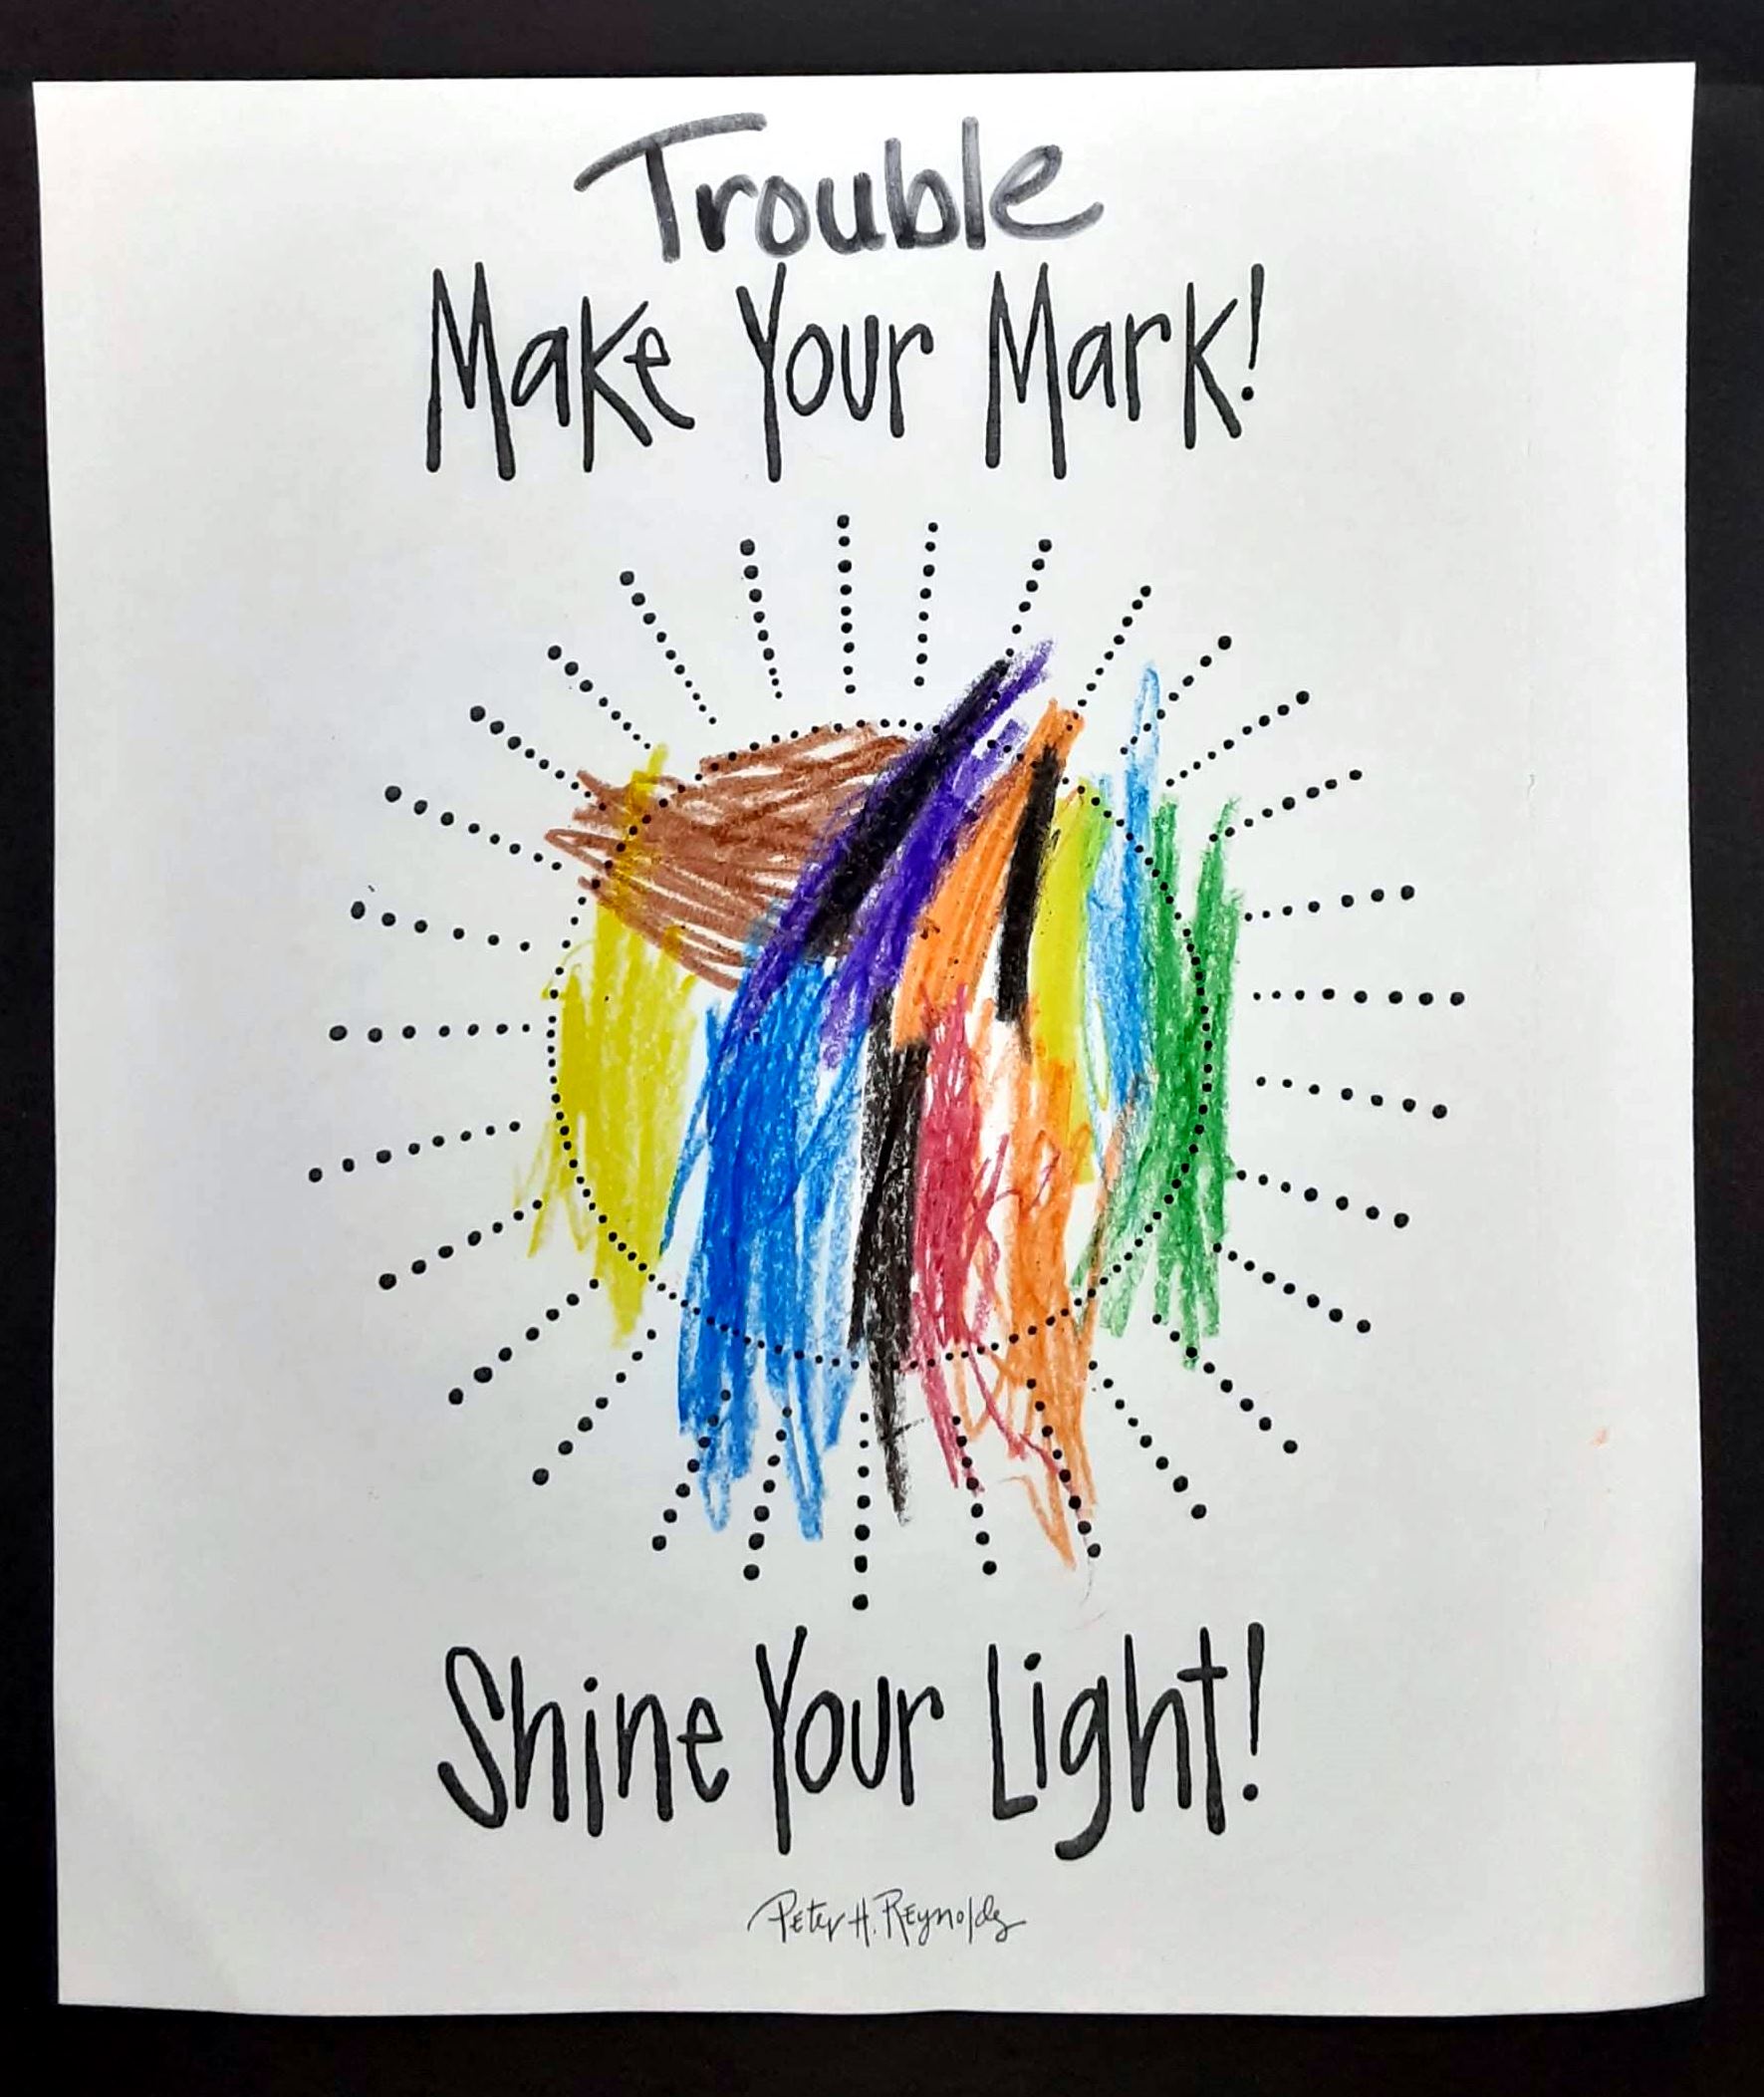 Trouble
Make Your Mark!
Shine Your Light!
Peter H. Reynolds